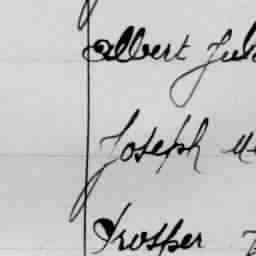 Albert Jul
Joseph
Prosper